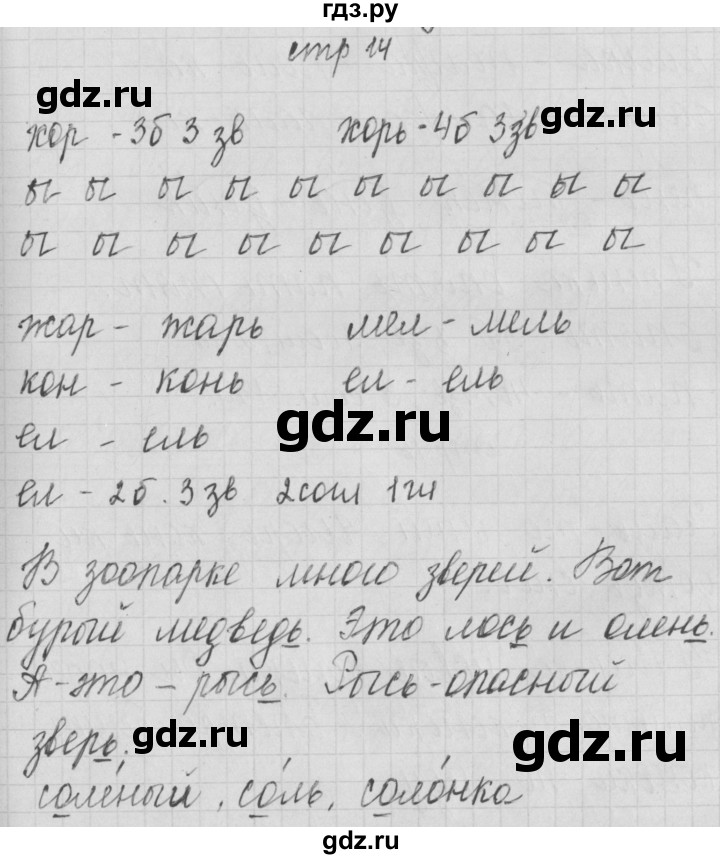 гдз.ру
стр 14
gdz.ru gdz.ru
хор - 3б 3 зв хорь - 4б 3зв
ы ы ы ы ы ы ы ы ы ы
ы ы ы ы ы ы ы ы ы
жар - жарь мел - мель
кон - конь ел - ель
gdz.ru
ел - ель
ел - 2б. 3 зв 2согл 1гл
В зоопарке много зверей. Вот
бурый медведь. Это лось и олень.
А - это - рысь. Рысь - опасный
зверь.
gdz.ru gdz.ru
солёный, соль, соло́нка
gdz.ru